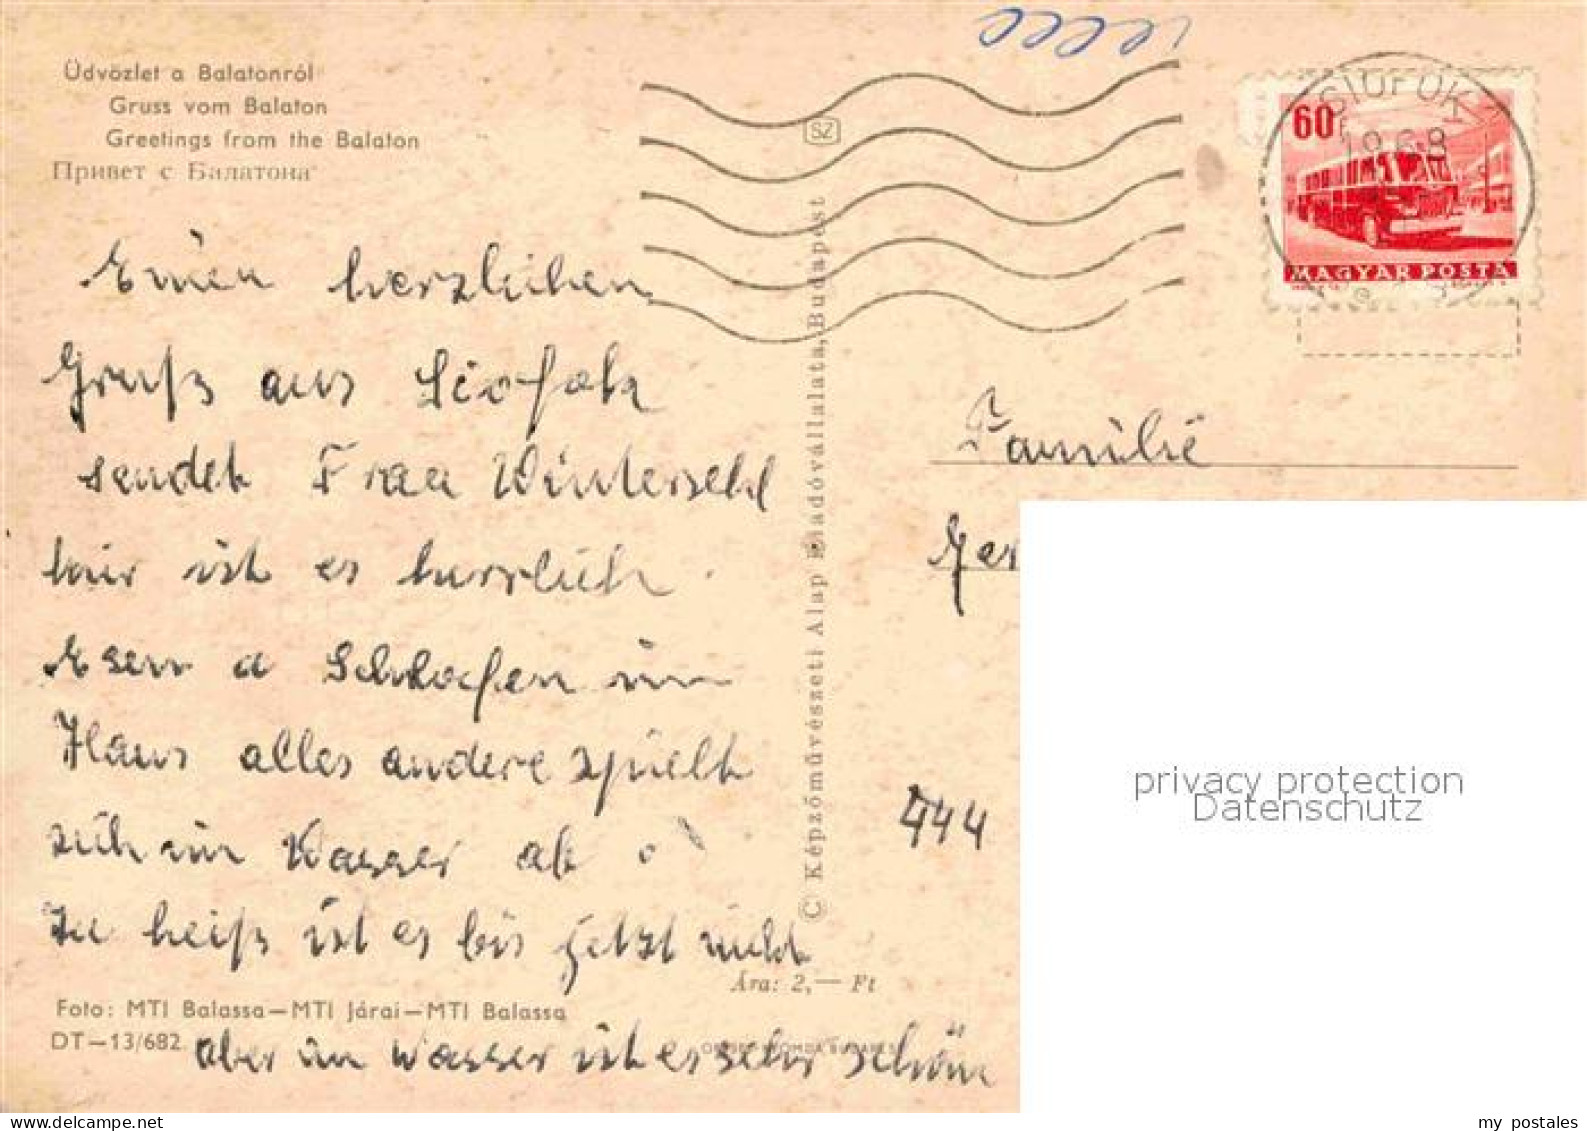 Üdvözlet a Balatonról
Gruss vom Balaton
Greetings from the Balaton
Привет с Балатона
SZ
SIÓFOK
1968
60f
MAGYAR POSTA
Einen herzlichen
Gruß aus Siofok
sendet Frau
hir ist es herrlich
Esen a Schlafen im
Haus alles andere spielt
sich im Wasser ab
Zu heiß ist es bis jetzt nicht
aber im Wasser ist es sehr schön
Familie
444
© Képzőművészeti Alap Kiadóvállalata, Budapest
Ára: 2,— Ft
Foto: MTI Balassa—MTI Járai—MTI Balassa
DT—13/682
privacy protection
Datenschutz
my postales